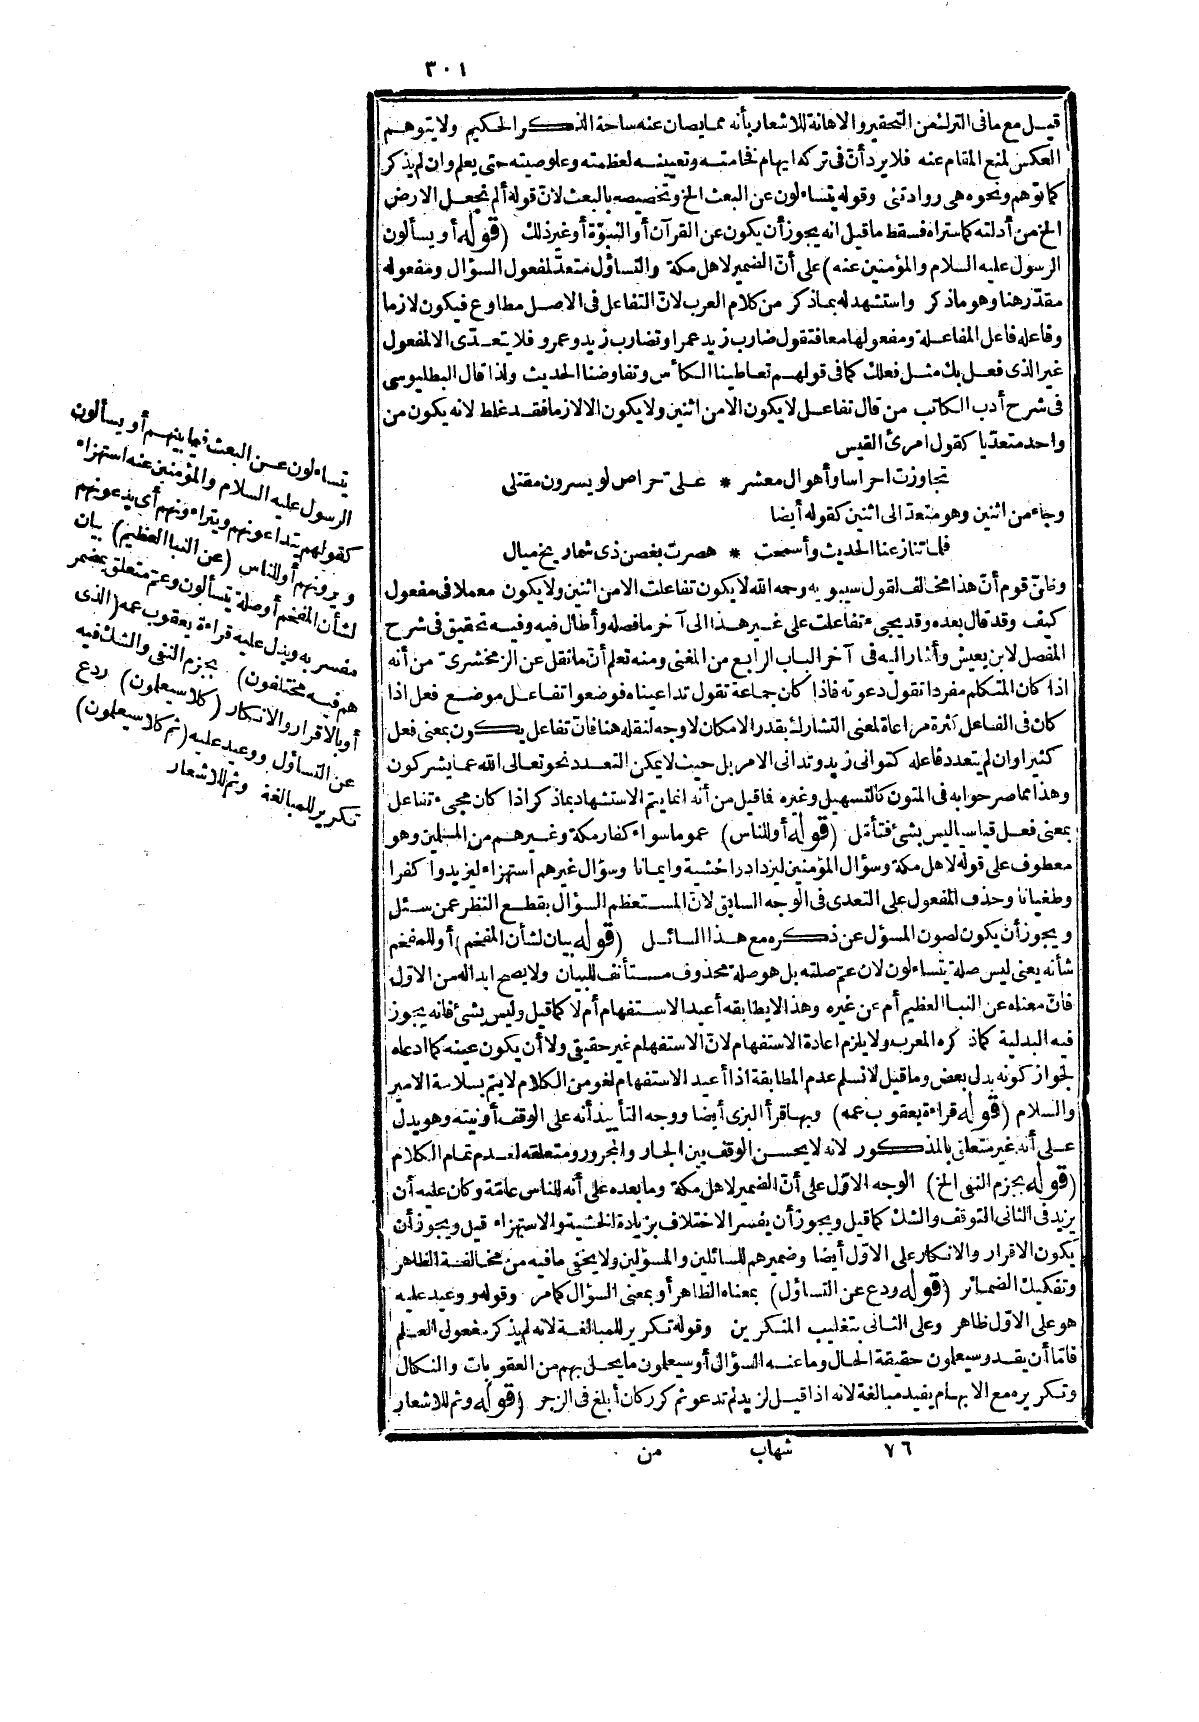 ٣٠١
قيل مع ما فى الترك من التحقير والاهانة للاشعار بأنه مما يصان عنه ساحة الذكر الحكيم ولا يتوهم
العكس لمنع المقام عنه فلا يرد أنّ فى تركه ايهام فخامته وتعيينه لعظمته وعلو صيته حتى يعلم وان لم يذكر
كما توهم ونحوه هى روادتنى وقوله يتساءلون عن البعث الخ وتخصيصه بالبعث لانّ قوله ألم نجعل الارض
الخ من أدلته كما ستراه فسقط ما قيل انه يجوز أن يكون عن القرآن أو النبوّة أو غير ذلك (قوله أو يسألون
الرسول عليه السلام والمؤمنين عنه) على أنّ الضمير لاهل مكة والتساؤل متعدّ لمفعول السؤال ومفعوله
مقدّر هنا وهو ما ذكر واستشهد له بما ذكر من كلام العرب لانّ التفاعل فى الاصل مطاوع فيكون لازما
وفاعله فاعل المفاعلة ومفعولها معا فتقول ضارب زيد عمرا وتضارب زيد وعمرو فلا يتعدّى الا لمفعول
غير الذى فعل بك مثل فعلك كما فى قولهم تعاطينا الكأس وتفاوضنا الحديث ولذا قال البطليوسى
فى شرح أدب الكاتب من قال تفاعل لا يكون الا من اثنين ولا يكون الا لازما فقد غلط لانه يكون من
واحد متعدّيا كقول امرئ القيس
تجاوزت احراسا وأهوال معشر * على حراص لو يسرون مقتلى
وجاء من اثنين وهو متعدّ الى اثنين كقوله أيضا
فلما تنازعنا الحديث وأسمحت * هصرت بغصن ذى شماريخ ميال
وظنّ قوم أنّ هذا مخالف لقول سيبويه رحمه الله لا يكون تفاعلت الا من اثنين ولا يكون معملا فى مفعول
كيف وقد قال بعده وقد يجىء تفاعلت على غير هذا الى آخر ما فصله وأطال فيه وفيه تحقيق فى شرح
المفصل لابن يعيش وأشار اليه فى آخر الباب الرابع من المغنى ومنه تعلم أنّ ما نقل عن الزمخشرىّ من أنه
اذا كان المتكلم مفردا تقول دعوته فاذا كان جماعة تقول تداعيناه فوضعوا تفاعل موضع فعل اذا
كان فى الفاعل كثرة مراعاة لمعنى التشارك بقدر الامكان لا وجه لنقله هنا فانّ تفاعل يكون بمعنى فعل
كثيرا وان لم يتعدد فاعله كتوانى زيد وتدانى الامر بل حيث لا يمكن التعدد نحو تعالى الله عما يشركون
وهذا مما صرحوا به فى المتون كالتسهيل وغيره فما قيل من أنه انما يتم الاستشهاد بما ذكر اذا كان مجىء تفاعل
بمعنى فعل قياسيا ليس بشئ فتأمّل (قوله أو للناس) عموما سواء كفار مكة وغيرهم من المسلمين وهو
معطوف على قوله لاهل مكة وسؤال المؤمنين ليزدادوا خشية وايمانا وسؤال غيرهم استهزاء ليزيدوا كفرا
وطغيانا وحذف المفعول على التعدى فى الوجه السابق لانّ المستعظم السؤال بقطع النظر عمن سئل
ويجوز أن يكون لصون المسؤل عن ذكره مع هذا السائل (قوله بيان لشأن المفخم) أو للمفخم
شأنه يعنى ليس صلة يتساءلون لان عمّ صلته بل هو صلة محذوف مستأنف للبيان ولا يصح ابداله من الاوّل
فانّ معناه عن النبا العظيم أم عن غيره وهذا لا يطابقه أعيد الاستفهام أم لا كما قيل وليس بشئ فانه يجوز
فيه البدلية كما ذكره المعرب ولا يلزم اعادة الاستفهام لانّ الاستفهام غير حقيقى ولا أن يكون عينه كما ادعاه
لجواز كونه بدل بعض وما قيل لا نسلم عدم المطابقة اذا أعيد الاستفهام لغو من الكلام لا يتم بسلامة الامير
والسلام (قوله قراءة يعقوب عمه) وبها قرأ البزى أيضا ووجه التأييد أنه على الوقف أو نيته وهو يدل
على أنه غير متعلق بالمذكور لانه لا يحسن الوقف بين الجار والمجرور ومتعلقه لعدم تمام الكلام
(قوله بجزم النفى الخ) الوجه الاوّل على أنّ الضمير لاهل مكة وما بعده على أنه للناس عامّة وكان عليه أن
يزيد فى الثانى التوقف والشك كما قيل ويجوز أن يفسر الاختلاف بزيادة الخشية والاستهزاء قيل ويجوز أن
يكون الاقرار والانكار على الاوّل أيضا وضميرهم للسائلين والمسؤلين ولا يخفى ما فيه من مخالفة الظاهر
وتفكيك الضمائر (قوله ردع عن التساؤل) بمعناه الظاهر أو بمعنى السؤال كما مر وقوله ووعيد عليه
هو على الاوّل ظاهر وعلى الثانى بتغليب المنكرين وقوله تكرير للمبالغة لانه لم يذكر مفعولى العلم
فامّا أن يقدر سيعلمون حقيقة الحال وما عنه السؤال أو سيعلمون ما يحل بهم من العقوبات والنكال
وتكريره مع الابهام يفيد مبالغة لانه اذا قيل لزيد لم تدعو ثم كرر كان أبلغ فى الزجر (قوله وثم للاشعار
يتساءلون عن البعث فيما بينهم أو يسألون
الرسول عليه السلام والمؤمنين عنه استهزاء
كقولهم يتداعونهم ويتراءونهم أى يدعونهم
ويرونهم أو للناس (عن النبا العظيم) بيان
لشأن المفخم أو صلة يتسألون وعمّ متعلق بمضمر
مفسر به ويدل عليه قراءة يعقوب عمه (الذى
هم فيه مختلفون) بجزم النفى والشك فيه
أو بالاقرار والانكار (كلا سيعلمون) ردع
عن التساؤل ووعيد عليه (ثم كلا سيعلمون)
تكرير للمبالغة وثم للاشعار
٧٦ شهاب من